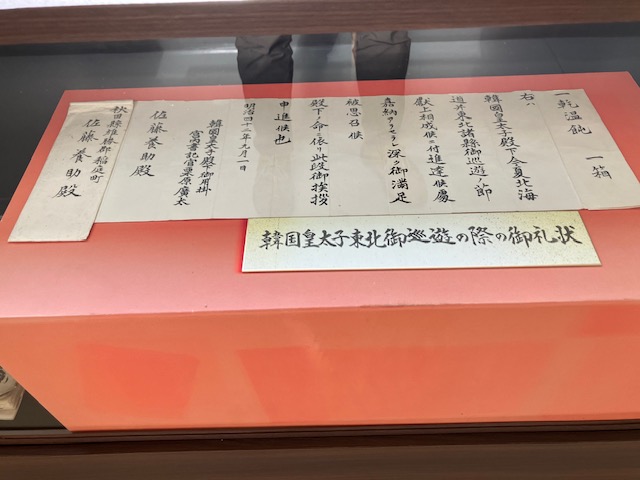 一乾温飩 一箱
右ハ
韓國皇太子殿下今夏北海
道並東北諸縣御巡遊ノ節
獻上相成候ニ付進達候處
嘉納アラセラレ深ク御滿足
被思召候
殿下ノ命ニ依リ此段御挨拶
申進候也
明治四十二年九月一日
韓國皇太子殿下御用掛
宮内書記官栗原廣太
佐藤養助殿
秋田縣雄勝郡稲庭町
佐藤養助殿
韓国皇太子東北御巡遊の際の御礼状